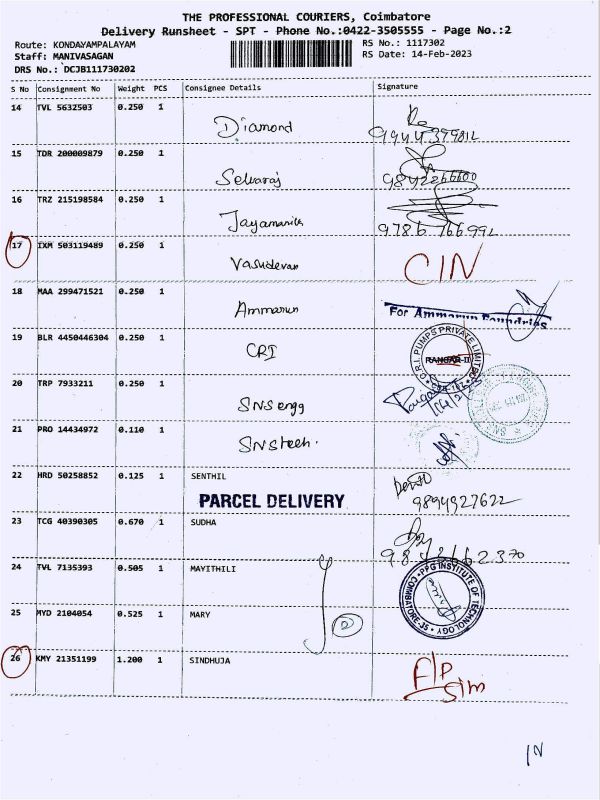 THE PROFESSIONAL COURIERS, Coimbatore
Delivery Runsheet - SPT - Phone No.:0422-3505555 - Page No.:2
Route: KONDAYAMPALAYAM RS No.: 1117302
Staff: MANIVASAGAN RS Date: 14-Feb-2023
DRS No.: DCJB111730202
S No Consignment No Weight PCS Consignee Details Signature
14 TVL 5632503 0.250 1 Diamond
9944399812
15 TDR 200009879 0.250 1 Selvaraj
9842266600
16 TRZ 215198584 0.250 1
9786766992
17 IXM 503119489 0.250 1 Vasudevan CIN
18 MAA 299471521 0.250 1 Ammarun For Ammarun Foundries
19 BLR 4450446304 0.250 1 CRI C.R.I. PUMPS PRIVATE LIMITED
20 TRP 7933211 0.250 1 SNS engg
21 PRO 14434972 0.110 1 SNS tech.
22 HRD 50258852 0.125 1 SENTHIL
PARCEL DELIVERY 9894927622
23 TCG 40390305 0.670 1 SUDHA
9842662370
24 TVL 7135393 0.505 1 MAYITHILI PPG INSTITUTE OF TECHNOLOGY
COIMBATORE-35
25 MYD 2104054 0.525 1 MARY 2
26 KMY 21351199 1.200 1 SINDHUJA F/P
IN